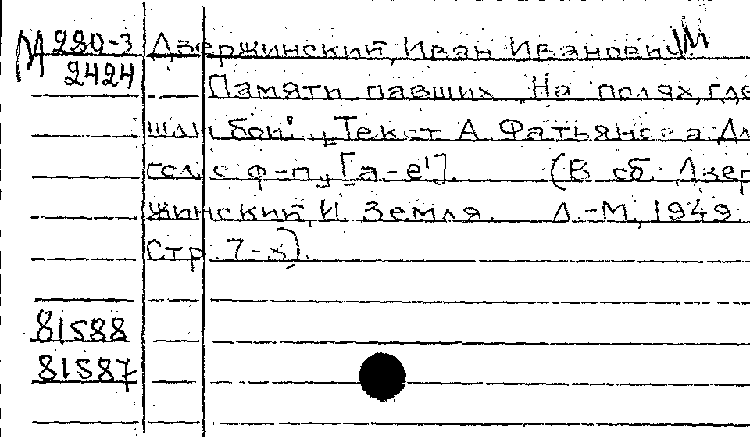 М 280-3 Дзержинский, Иван Иванович М
2424
Памяти павших "На полях, где
шли бои". Текст А. Фатьянова Дл
гол. с ф-п. [a-e¹]. (В сб. Дзер
жинский, И. Земля. Л.-М., 1949.
Стр. 7-8).
81588
81587